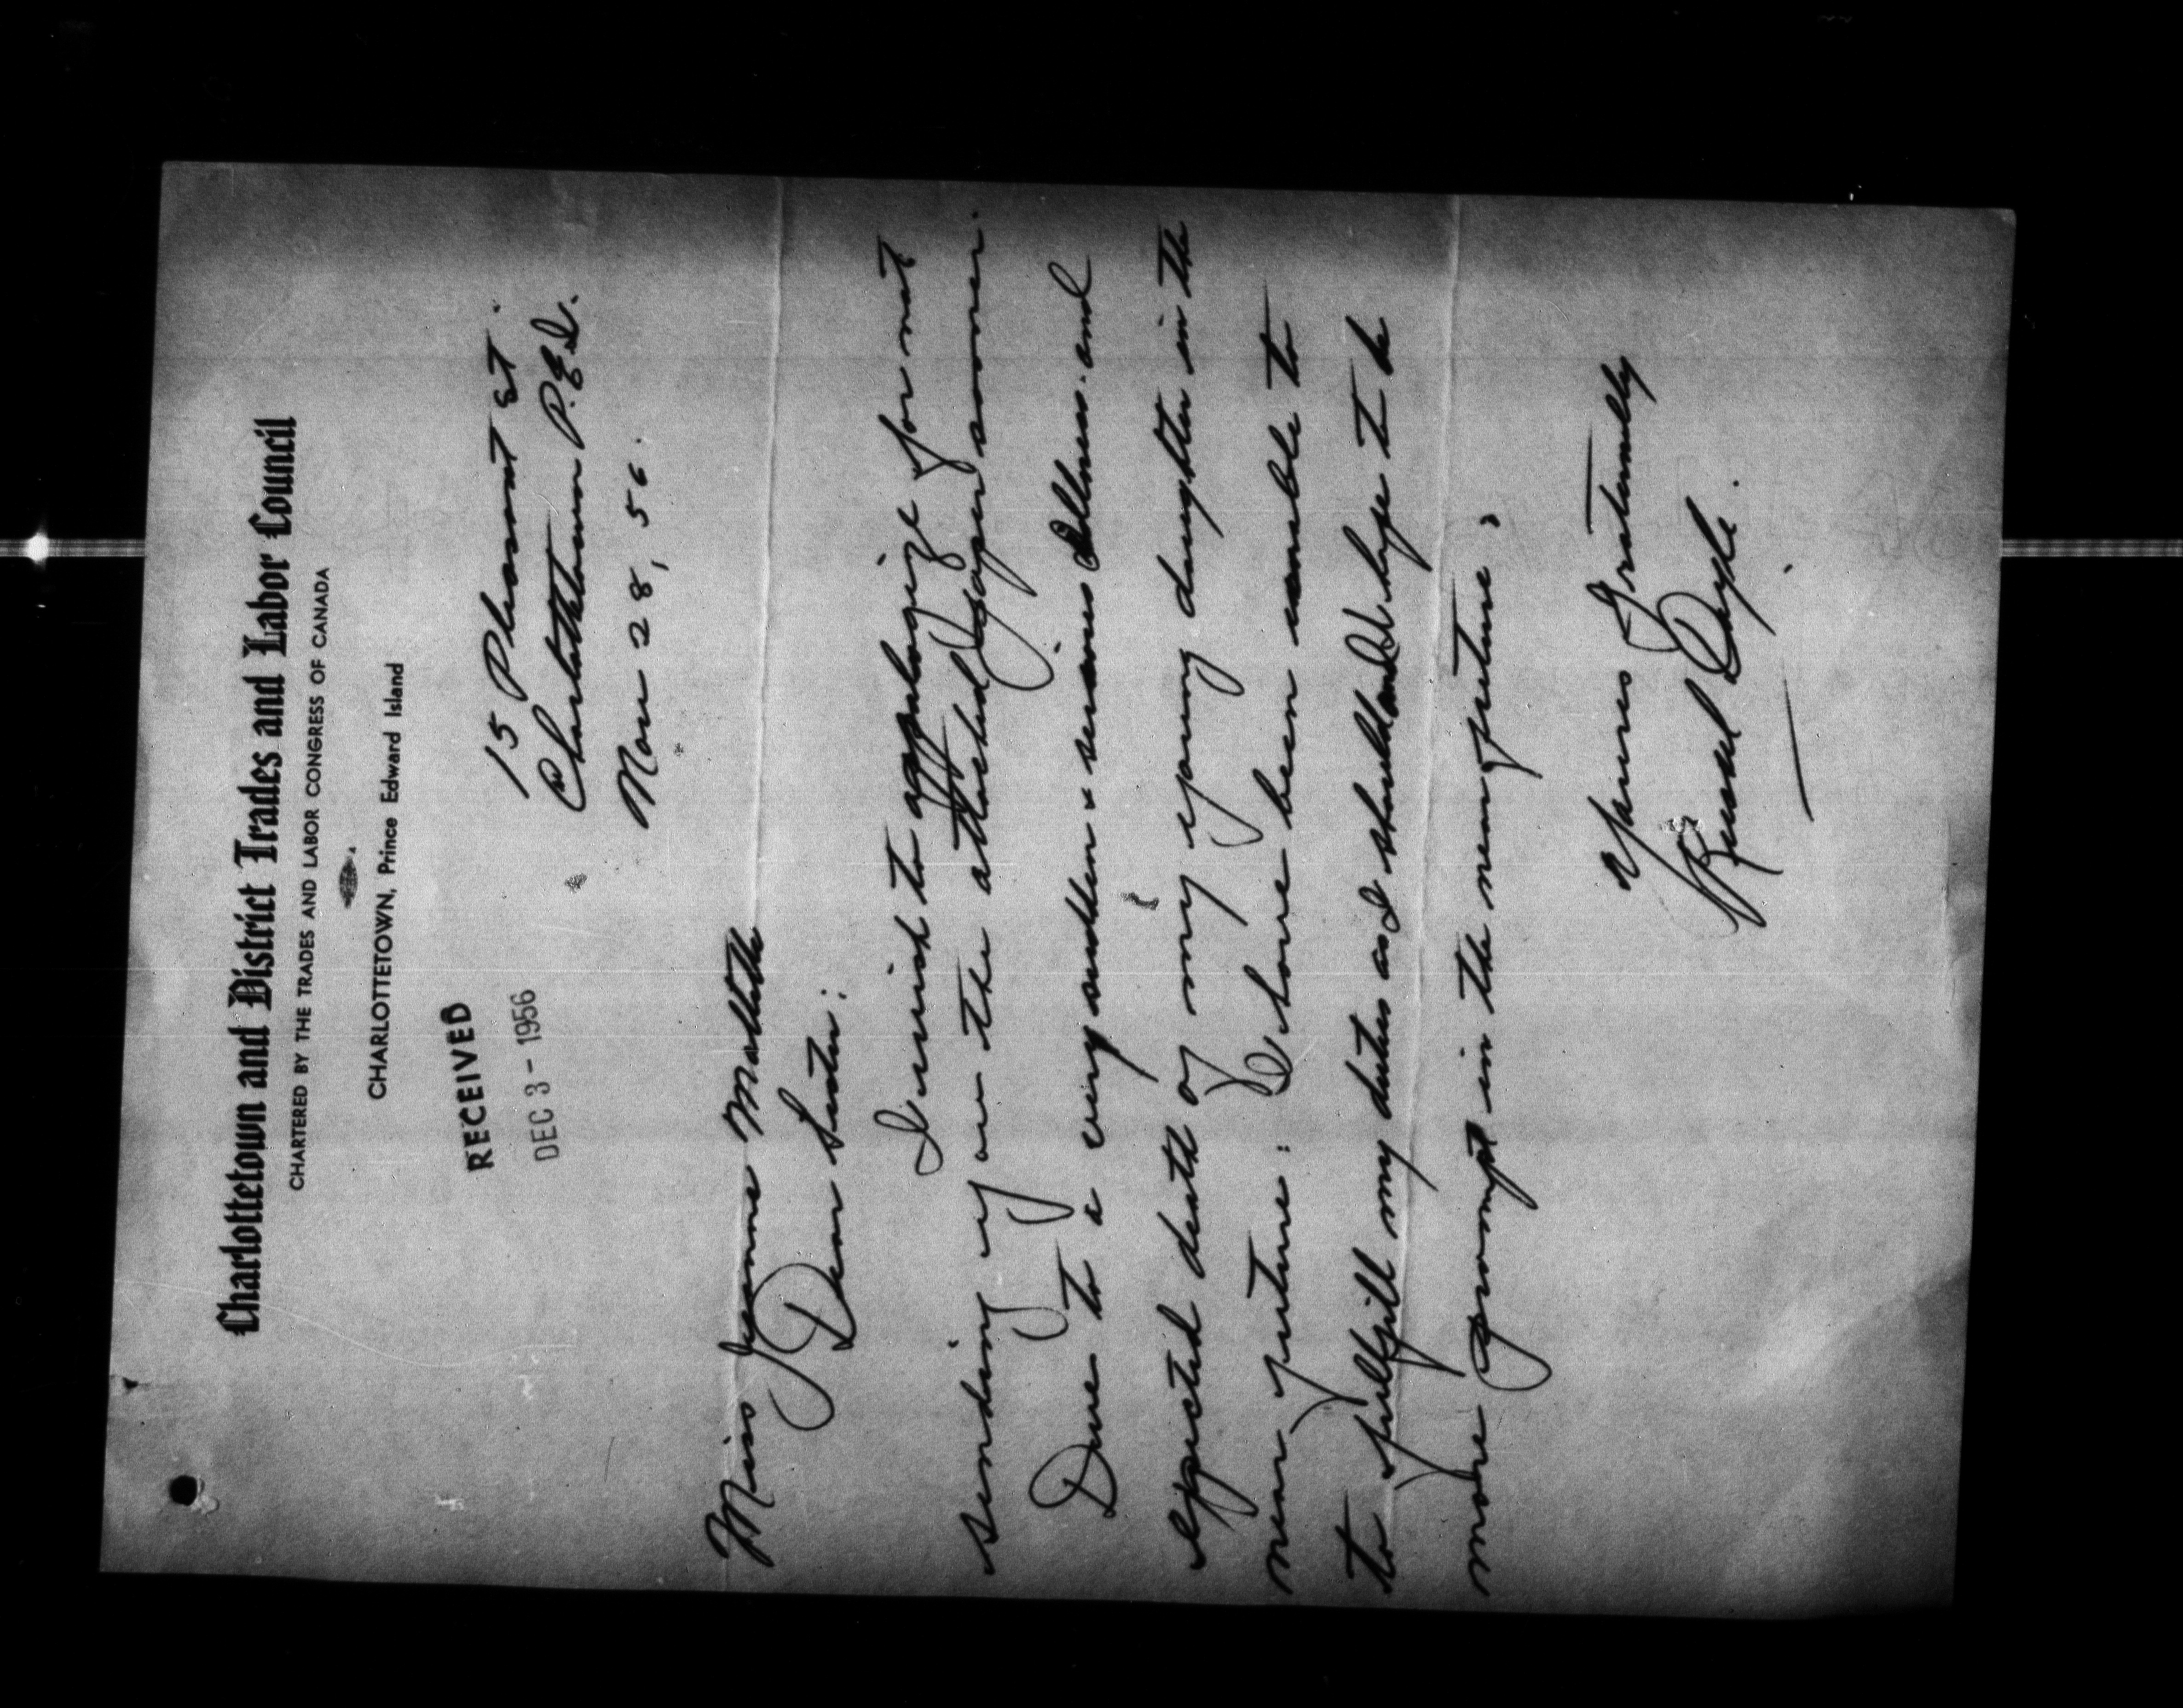 Charlottetown and District Trades and Labor Council
CHARTERED BY THE TRADES AND LABOR CONGRESS OF CANADA
CHARLOTTETOWN, Prince Edward Island
RECEIVED
DEC 3 - 1956
15 Pleasant St.
Charlottetown P.E.I.
Nov 28, 56.
Miss Jeanne
Dear Sister:
I wish to apologize for not
sending you the attached papers sooner.
Due to a very sudden & serious illness. and
expected death of my young daughter in the
near future: I have been unable to
to fullfill my duties as I should and I hope to be
more prompt in the near future.
Yours Fraternally
Russel Doyle.